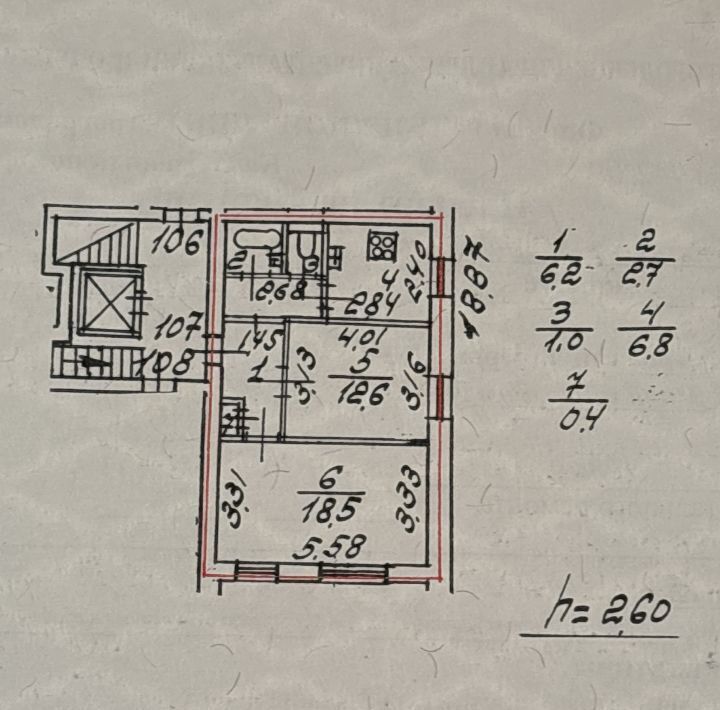 106
107
108
2
3
2.68
4
2.84
2.40
18.87
1.45
1
4.01
3.13
5
12.6
3.16
7
3.31
6
18.5
3.33
5.58
1
6.2
2
2.7
3
1.0
4
6.8
7
0.4
h=2.60